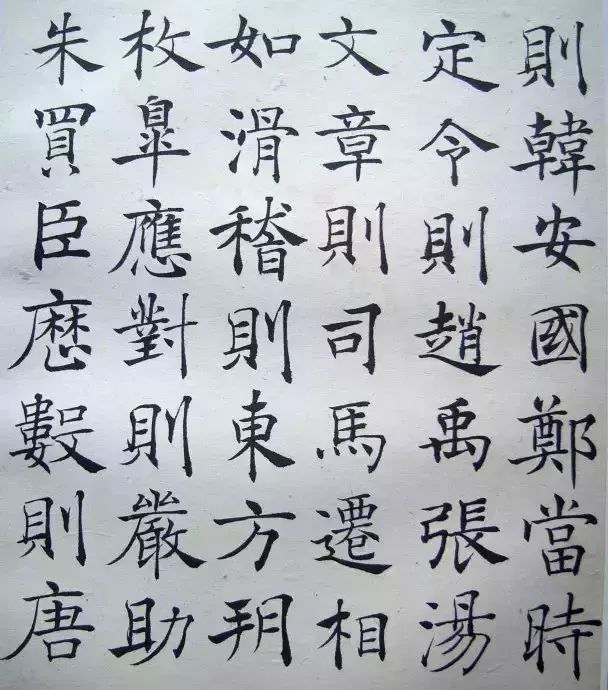 則韓安國鄭當時
定令則趙禹張湯
文章則司馬遷相
如滑稽則東方朔
枚皐應對則嚴助
朱買臣歴數則唐